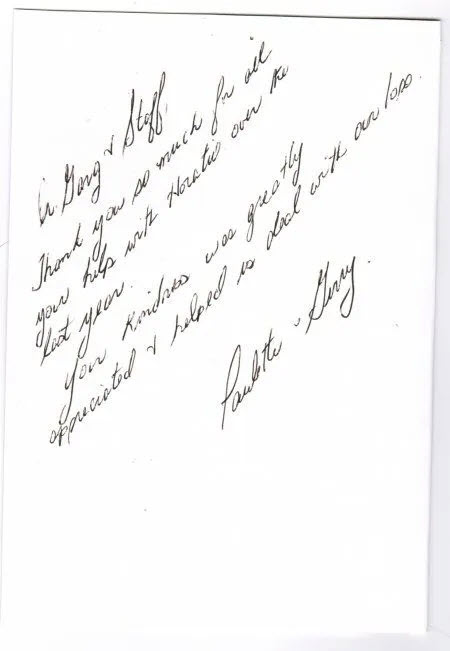 Dr. Garg & Staff,
Thank you so much for all
your help with Horatio over the
last year.
Your kindness was greatly
appreciated & helped us deal with our loss.
Paulette & Gerry.